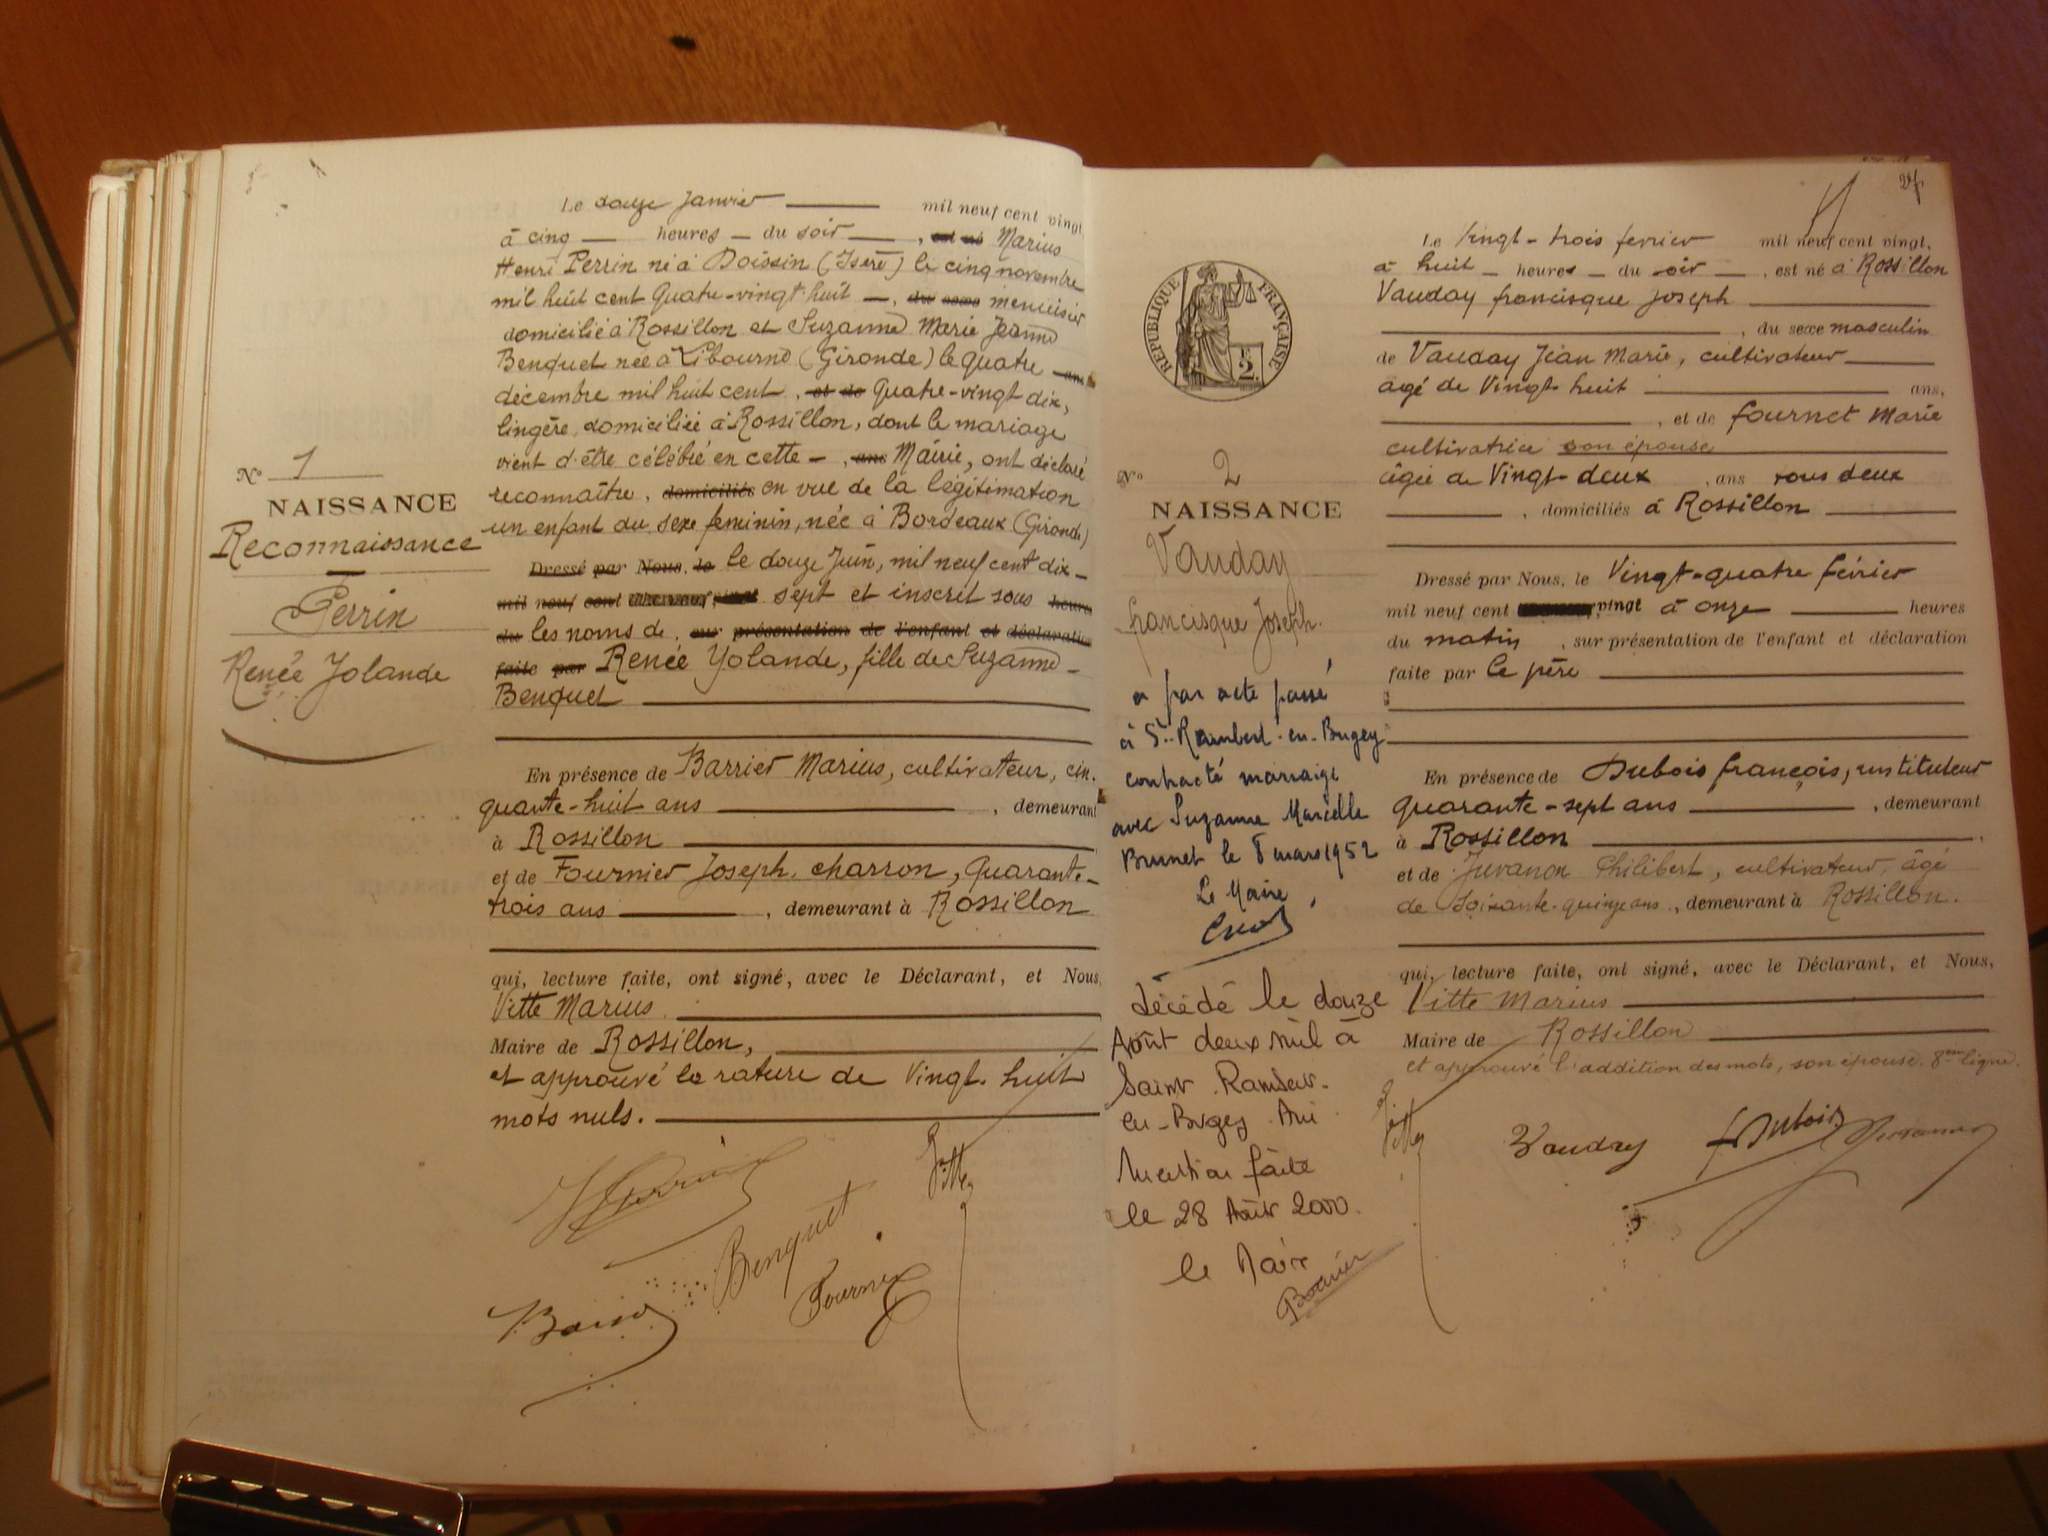 N° 1
NAISSANCE
Reconnaissance
Perrin
Renée Yolande
Le douze Janvier mil neuf cent vingt,
à cinq heures du soir, est né Marius
Henri Perrin né à Doissin (Isère) le cinq novembre
mil huit cent Quatre-vingt-huit, du sexe menuisier
domicilié à Rossillon et Suzanne Marie Jeanne
Benquet née à Libourne (Gironde) le quatre ans
décembre mil huit cent, et de Quatre-vingt dix,
lingère, domiciliée à Rossillon, dont le mariage
vient d'être célébré en cette, ans Mairie, ont déclaré
reconnaître, domiciliés en vue de la légitimation
un enfant du sexe féminin, née à Bordeaux (Gironde)
Dressé par Nous, le le douze Juin, mil neuf cent dix-
mil neuf cent vingt sept et inscrit sous heures
du les noms de, sur présentation de l'enfant et déclaration
faite par Renée Yolande, fille de Suzanne
Benquet
En présence de Barrier Marius, cultivateur, cin-
quante-huit ans, demeurant
à Rossillon
et de Fournier Joseph, charron, Quarante-
trois ans, demeurant à Rossillon
qui, lecture faite, ont signé, avec le Déclarant, et Nous,
Vitte Marius
Maire de Rossillon,
et approuvé la rature de Vingt-huit
mots nuls.
Perrin
Vitte
Benquet
Fournier
Barrier
24
RÉPUBLIQUE FRANÇAISE
N° 2
NAISSANCE
Vauday
francisque Joseph.
a par acte passé
à St-Rambert-en-Bugey
contracté mariage
avec Suzanne Marcelle
Brunet le 8 mars 1952
Le Maire,
Décédé le douze
Août deux mil à
Saint-Rambert-
en-Bugey Ain
Mention faite
le 28 Août 2000.
le Maire
Le Vingt-trois fevrier mil neuf cent vingt,
à huit heures du soir, est né à Rossillon
Vauday francisque Joseph
, du sexe masculin
de Vauday Jean Marie, cultivateur
agé de Vingt huit ans,
, et de fournet Marie
cultivatrice son épouse
âgée de Vingt-deux, ans tous deux
, domiciliés à Rossillon
Dressé par Nous, le Vingt-quatre février
mil neuf cent vingt à onze heures
du matin, sur présentation de l'enfant et déclaration
faite par le père
En présence de Dubois françois, instituteur
quarante-sept ans, demeurant
à Rossillon
et de Juvanon Philibert, cultivateur, âgé
de soixante-quinze ans, demeurant à Rossillon.
qui, lecture faite, ont signé, avec le Déclarant, et Nous,
Vitte Marius
Maire de Rossillon
et approuvé l'addition des mots, son épouse. 8ème ligne.
Vitte
Vauday
Dubois
Juvanon